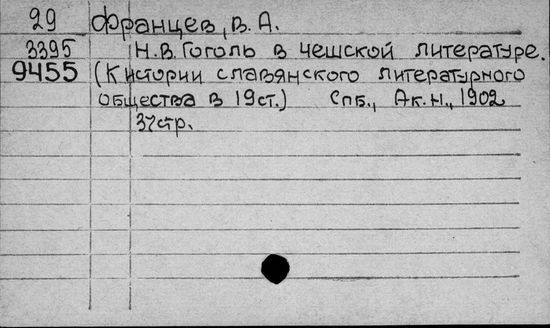 29 Францев, В. А.
3395 Н.В. Гоголь в чешской литературе.
9455 (К истории славянского литературного
общества в 19 ст.) Спб., Ак. н., 1902
37 стр.